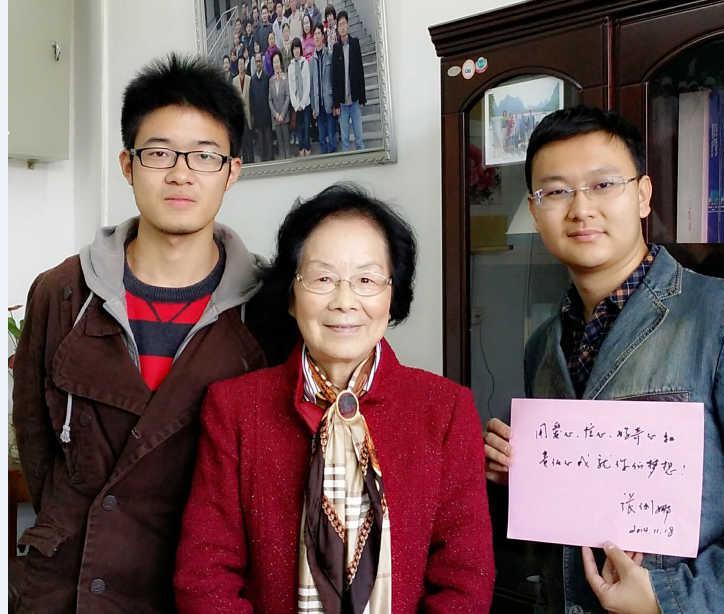 用爱心、信心、好奇心和
责任心成就你的梦想!
张俐娜
2014.11.18